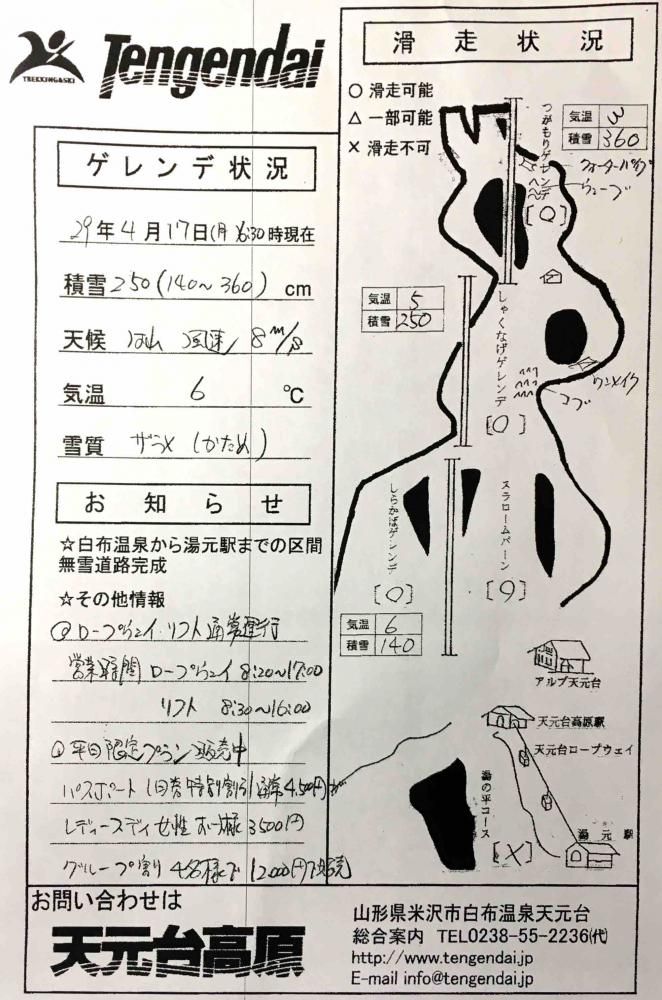 TREKKING&SKI
Tengendai
ゲレンデ状況
29年4月17日(月)6:30時現在
積雪250(140～360)cm
天候 風速 8m/s
気温 6 ℃
雪質 ザラメ(かため)
お知らせ
☆白布温泉から湯元駅までの区間
無雪道路完成
☆その他情報
ロープウェイ・リフト通常運行
営業時間 ロープウェイ 8:20～17:00
リフト 8:30～16:00
平日限定プラン販売中
パスポート1日券特別割引 通常4,500円が
レディースディ 女性お一人様 3500円
グループ割り 4名様で12,000円で販売
滑走状況
○ 滑走可能
△ 一部可能
× 滑走不可
つがもりゲレンデ
[○]
気温 3
積雪 360
クォーターパイプ
ウェーブ
気温 5
積雪 250
しゃくなげゲレンデ
[○]
ワンメイク
コブ
しらかばゲレンデ
[○]
スラロームバーン
[○]
気温 6
積雪 140
アルブ天元台
天元台高原駅
天元台ロープウェイ
湯の平コース
[×]
湯元駅
お問い合わせは
天元台高原
山形県米沢市白布温泉天元台
総合案内 TEL0238-55-2236㈹
http://www.tengendai.jp
E-mail info@tengendai.jp